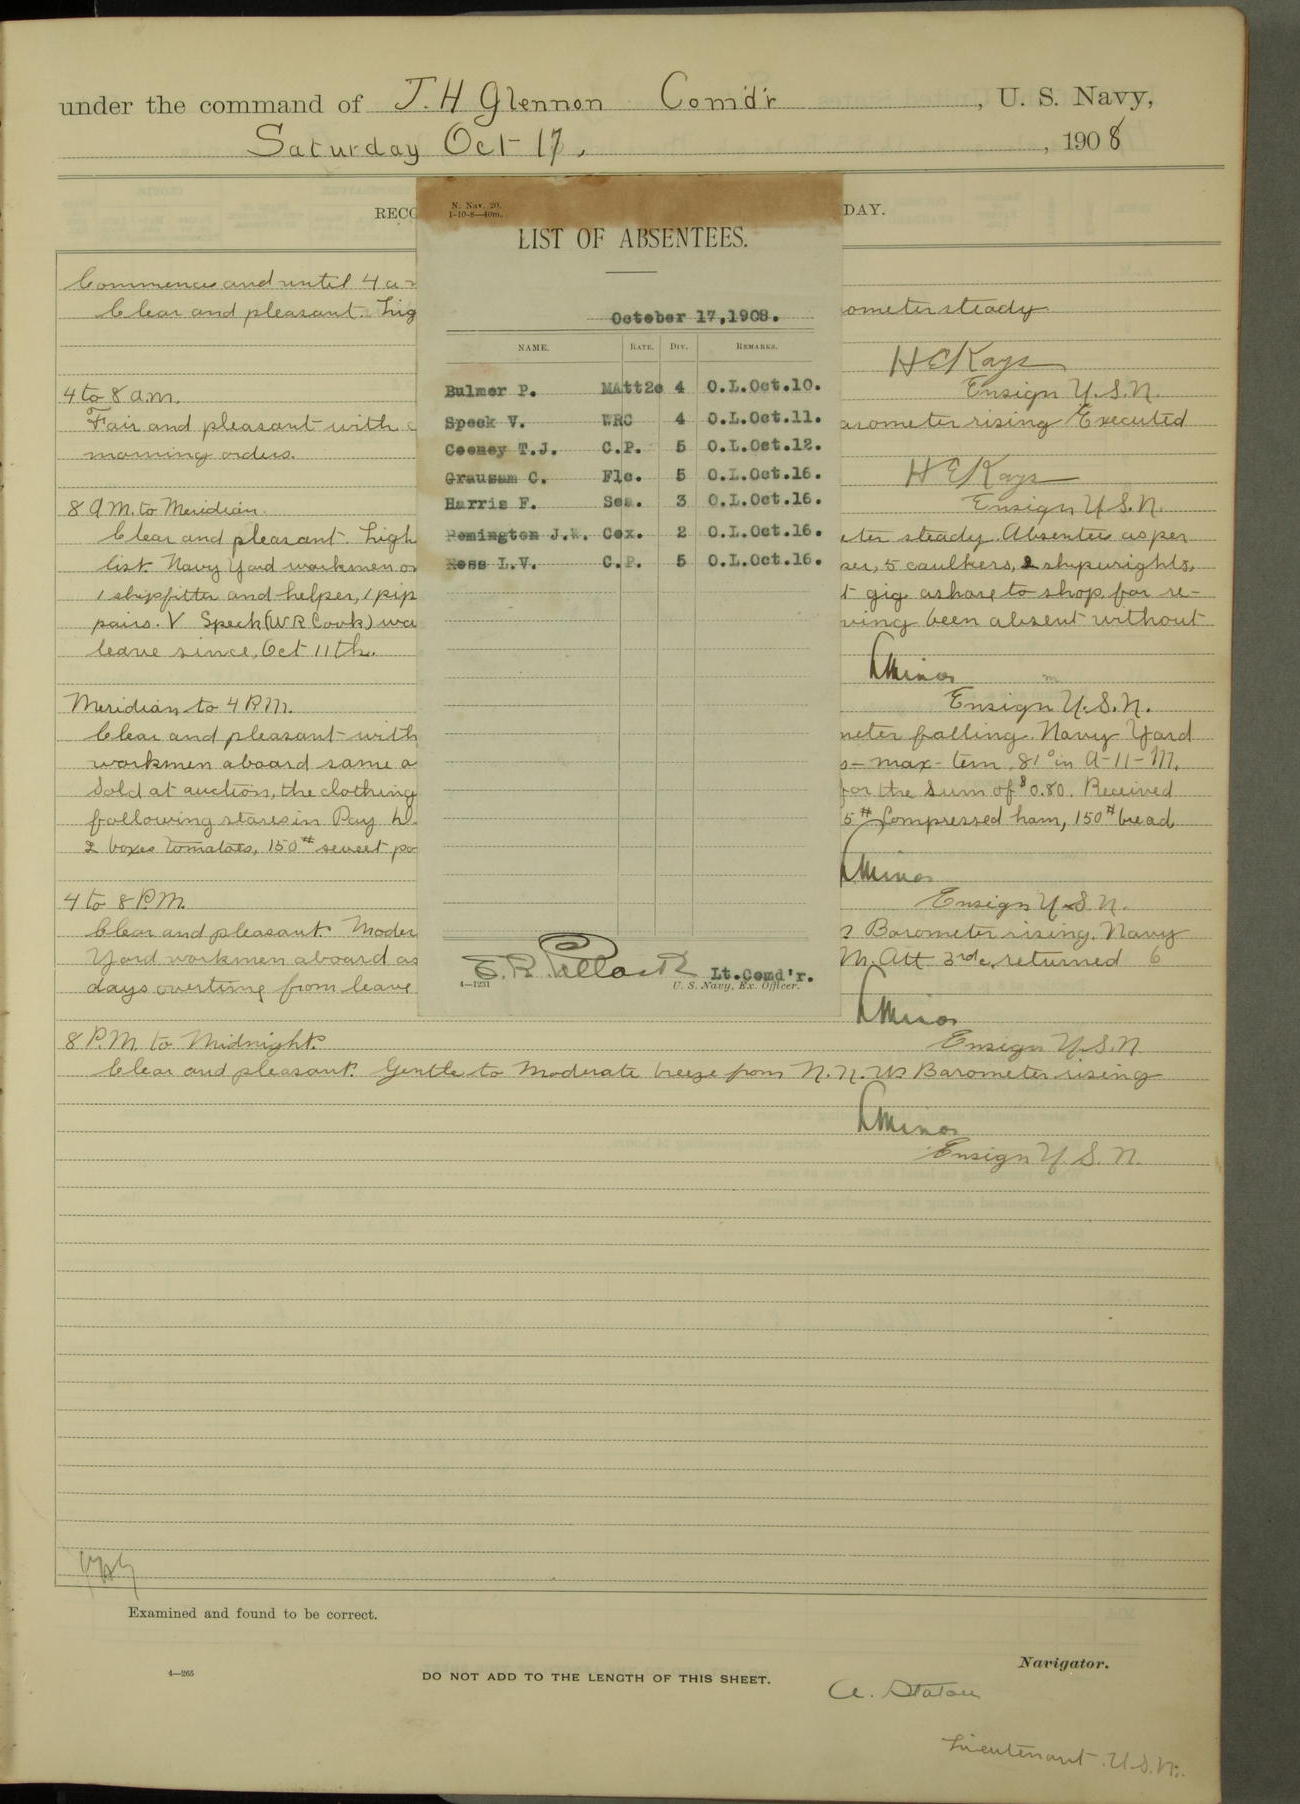 under the command of J. H Glennon Com'd'r , U. S. Navy,
Saturday Oct 17, , 1908
RECO
DAY.
N. Nav. 20.
1-10-8—40m.
LIST OF ABSENTEES.
October 17,1908.
NAME. RATE. DIV. REMARKS.
Bulmer P. MAtt2c 4 O.L.Oct.10.
Speck V. WRC 4 O.L.Oct.11.
Cooney T.J. C.P. 5 O.L.Oct.12.
Grausam C. F1c. 5 O.L.Oct.16.
Harris F. Sea. 3 O.L.Oct.16.
Remington J.W. Cox. 2 O.L.Oct.16.
Ross L.V. C.P. 5 O.L.Oct.16.
Lt.Comd'r.
4—1231 U. S. Navy, Ex. Officer.
Commences and until 4 a
Clear and pleasant. Lig
ometer steady
H E Kays
Ensign U.S.N.
4 to 8 a.m.
Fair and pleasant with
arometer rising Executed
morning orders.
H E Kays
Ensign U.S.N.
8 A.M. to Meridian.
Clear and pleasant. Ligh
eter steady. Absentees as per
list. Navy Yard workmen
per, 5 caulkers, 2 shipwrights,
1 shipfitter and helper, 1 pip
t gig ashore to shop for re-
pairs. V Speck (W R Cook) wa
ving been absent without
leave since, Oct 11th.
L Minor
Ensign U.S.N.
Meridian to 4 P.M.
Clear and pleasant with
meter falling. Navy Yard
workmen aboard same a
s- max- tem 81° in A-11-M.
Sold at auction, the clothing
for the sum of $0.80. Received
following stores in Pay
5# Compressed ham, 150# bread
2 boxes tomatoes, 150# sweet po
L Minor
Ensign U.S.N.
4 to 8 P.M.
Clear and pleasant. Moder
Barometer rising. Navy
Yard workmen aboard as
M. Att 3rd c. returned 6
days overtime from leave
L Minor
Ensign U.S.N
8 P.M. to Midnight.
Clear and pleasant. Gentle to Moderate breeze from N.N.W. Barometer rising
L Minor
Ensign U.S.N.
Examined and found to be correct.
4—265
DO NOT ADD TO THE LENGTH OF THIS SHEET.
Navigator.
A. Staton
Lieutenant. U.S.N.